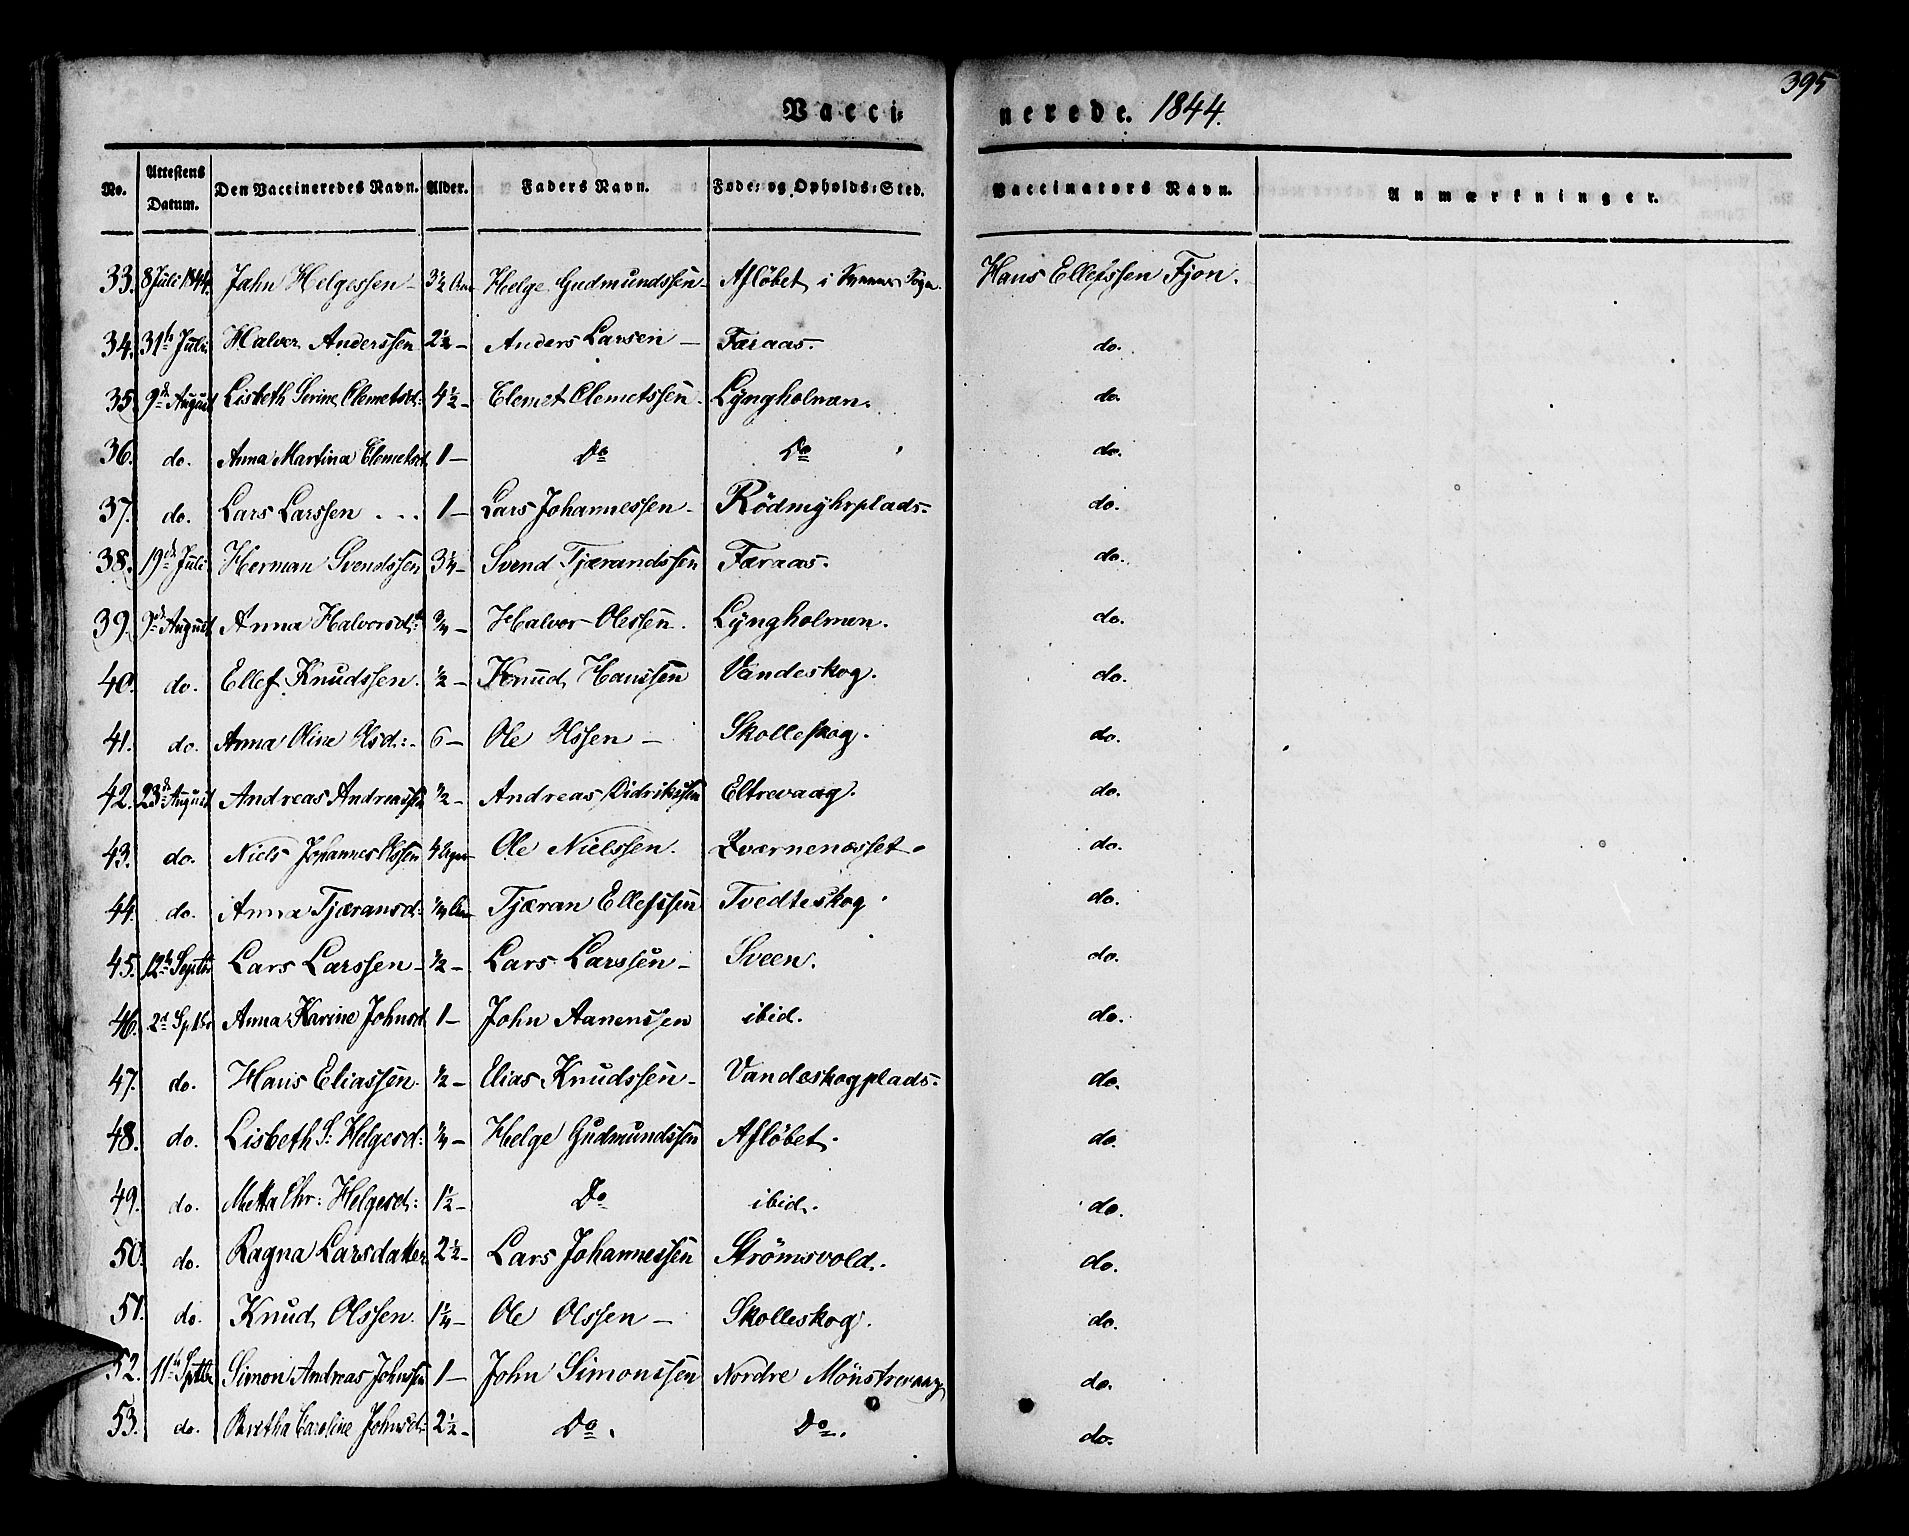 395
Vacci- nerede. 1844.
No. Attestens Datum. Den Vaccineredes Navn. Alder. Faders Navn. Føde- og Opholds-Sted. Vaccinators Navn. Anmærkninger.
33. 8 Juli 1844. Jahn Helgessen - 3½ Helge Gudmundssen - Afløbet i Hans Ellefssen Fjon.
34. 31te Juli Halvor Anderssen 2¼ - Anders Larsen - Færaas. do.
35. 9de August Lisbeth Serine Clemetsd: 4½ - Clemet Clemetssen - Lyngholmen. do.
36. do. Anna Martina Clemetsd. 1 - Do Do do.
37. do. Lars Larssen . . . 1 - Lars Johannessen - Rødmyhrplads. do.
38. 19de Juli Herman Svendssen 3¼ - Svend Tjærandssen Færaas. do.
39. 9de August Anna Halvorsd: ¾ - Halvor Olessen. Lyngholmen. do.
40. do. Ellef Knudssen. ½ - Knud Hanssen Vandeskog. do.
41. do. Anna Oline Olsd: - 6 - Ole Olssen - Skolleskog. do.
42. 23de August Andreas Andreassen ½ - Andreas Didrikssen Eltrevaag. do.
43. do. Niels Johannes Olssen 4 Uger Ole Nielssen. Kværnenæsset. do.
44. do. Anna Tjæransd: ¼ Tjæran Ellefssen Tvedteskog. do.
45. 12te Septbr Lars Larssen - ½ - Lars Larssen - Sveen. do.
46. 2d Sptbr Anna Karine Johnsd. 1 - John Aanenssen ibid. do.
47. do. Hans Eliassen. ½ - Elias Knudssen - Vandeskogplads. do.
48. do. Lisbeth S: Helgesd: ¼ - Helge Gudmundssen Afløbet. do.
49. do. Metta Chr: Helgesd: 1½ - Do ibid. do.
50. do. Ragna Larsdatter 2½ - Lars Johannessen Strømsvold. do.
51. do. Knud Olssen. 1¼ - Ole Olssen - Skolleskog. do.
52. 11te Sptbr Simon Andreas Johnssen 1 - John Simonssen Nordre Mønstrevaag do.
53. do. Bertha Caroline Johnsd: 2½ - Do. Do. do.